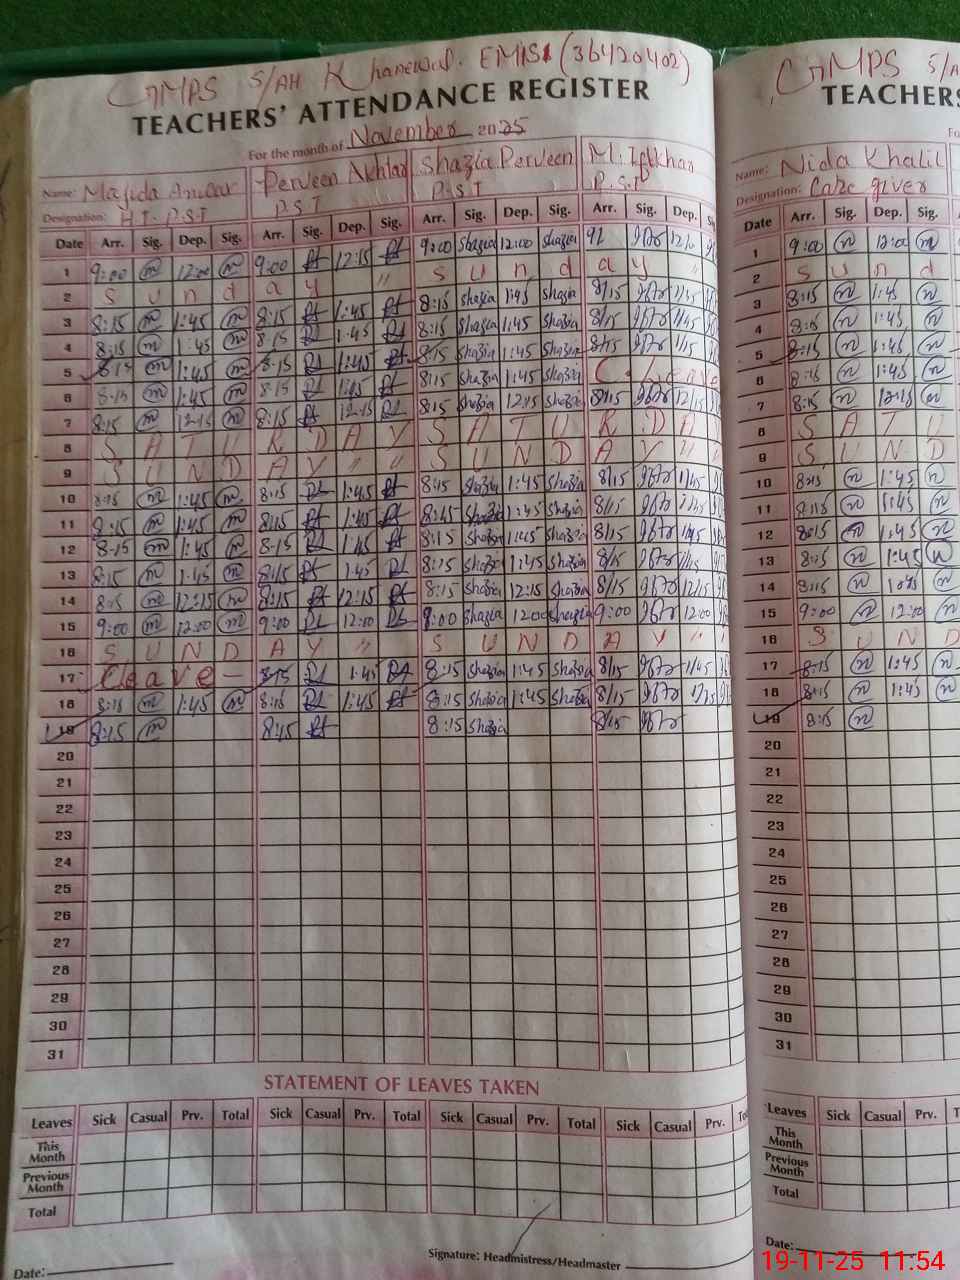 GMPS 5/AH Khanewal. EMIS (36420402)
TEACHERS' ATTENDANCE REGISTER
For the month of November 2025
Name: Majida Anwar Perveen Akhtar Shazia Perveen M. Iftkhar
Designation: H.T. P.S.T P.S.T P.S.T P.S.T
Date Arr. Sig. Dep. Sig. Arr. Sig. Dep. Sig. Arr. Sig. Dep. Sig. Arr. Sig. Dep.
1 9:00 m 12:00 m 9:00 12:15 9:00 Shazia 12:00 Shazia
2 S u n d a y " S u n d a y "
3 8:15 m 1:45 m 8:15 1:45 8:15 Shazia 1:45 Shazia 8/15 1/45
4 8:15 m 1:45 m 8:15 1:45 8:15 Shazia 1:45 Shazia 8/15 1/45
5 8:15 m 1:45 m 8:15 1:45 8:15 Shazia 1:45 Shazia 8/15 1/15
6 8:15 m 1:45 m 8:15 1:45 8:15 Shazia 1:45 Shazia C. leave
7 8:15 m 12:15 m 8:15 12:15 8:15 Shazia 12:15 Shazia 8/15 12/15
8 S A T U R D A Y S A T U R D A
9 S U N D A Y " " S U N D A Y "
10 8:15 m 1:45 m 8:15 1:45 8:15 Shazia 1:45 Shazia 8/15 1/45
11 8:15 m 1:45 m 8:15 1:45 8:45 Shazia 1:45 Shazia 8/15 1/45
12 8:15 m 1:45 m 8:15 1:45 8:15 Shazia 1:45 Shazia 8/15 1/45
13 8:15 m 1:45 m 8:15 1:45 8:15 Shazia 1:45 Shazia 8/15 1/45
14 8:15 m 12:15 m 8:15 12:15 8:15 Shazia 12:15 Shazia 8/15 12/15
15 9:00 m 12:00 m 9:00 12:00 9:00 Shazia 12:00 Shazia 9:00 12:00
16 S U N D A Y " S U N D A Y "
17 C leave - 8:15 1:45 8:15 Shazia 1:45 Shazia 8/15 1/45
18 8:15 m 1:45 m 8:15 1:45 8:15 Shazia 1:45 Shazia 8/15 1/15
19 8:15 m 8:15 8:15 Shazia 8/15
20
21
22
23
24
25
26
27
28
29
30
31
STATEMENT OF LEAVES TAKEN
Leaves Sick Casual Prv. Total Sick Casual Prv. Total Sick Casual Prv. Total Sick Casual Prv.
This Month
Previous Month
Total
Signature: Headmistress/Headmaster
Date:
GMPS 5/A
TEACHERS
Name: Nida Khalil
Designation: Care giver
Date Arr. Sig. Dep. Sig.
1 9:00 n 12:00 n
2 S u n d
3 8:15 n 1:45 n
4 8:15 n 1:45 n
5 8:15 n 1:45 n
6 8:15 n 1:45 n
7 8:15 n 12:15 n
8 S A T U
9 S U N D
10 8:15 n 1:45 n
11 8:15 n 1:45 n
12 8:15 n 1:45 n
13 8:15 n 1:45 n
14 8:15 n n
15 9:00 n 12:00 n
16 S U N D
17 8:15 n 1:45 n
18 8:15 n 1:45 n
19 8:15 n
20
21
22
23
24
25
26
27
28
29
30
31
Leaves Sick Casual Prv. Total
This Month
Previous Month
Total
Date:
19-11-25 11:54